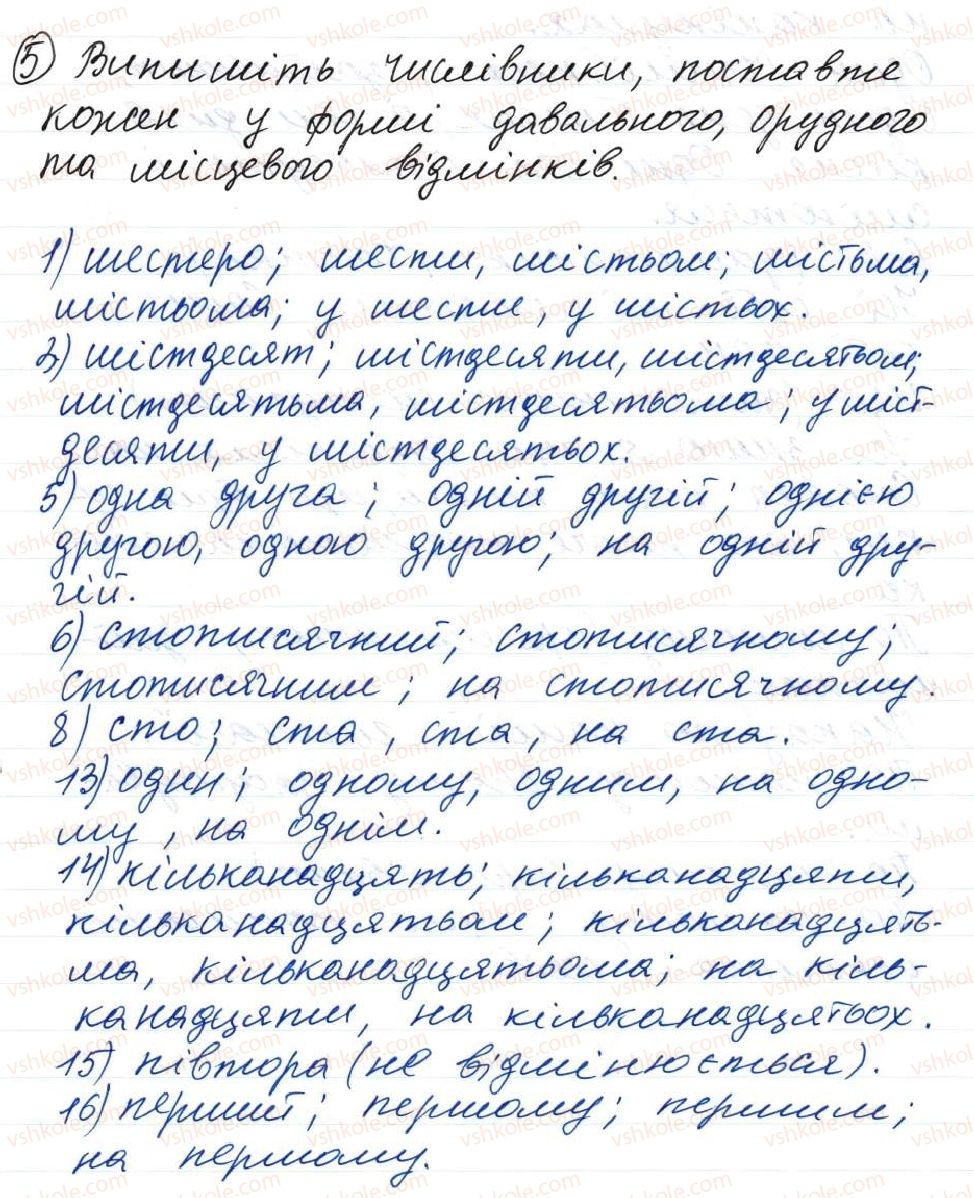 5 Випишіть числівники, поставте
кожен у формі давального, орудного
та місцевого відмінків.
1) шестеро; шести, шістьом; шістьма,
шістьома; у шести, у шістьох.
3) шістдесят; шістдесяти, шістдесятьом;
шістдесятьма, шістдесятьома; у шіст-
десяти, у шістдесятьох.
5) одна друга; одній другій; однією
другою, одною другою; на одній дру-
гій.
6) стотисячний; стотисячному;
стотисячним; на стотисячному.
8) сто; ста, ста, на ста.
13) один; одному, одним, на одно-
му, на однім.
14) кільканадцять; кільканадцяти,
кільканадцятьом; кільканадцять-
ма, кільканадцятьома; на кіль-
канадцяти, на кільканадцятьох.
15) півтора (не відмінюється).
16) перший; першому; першим;
на першому.